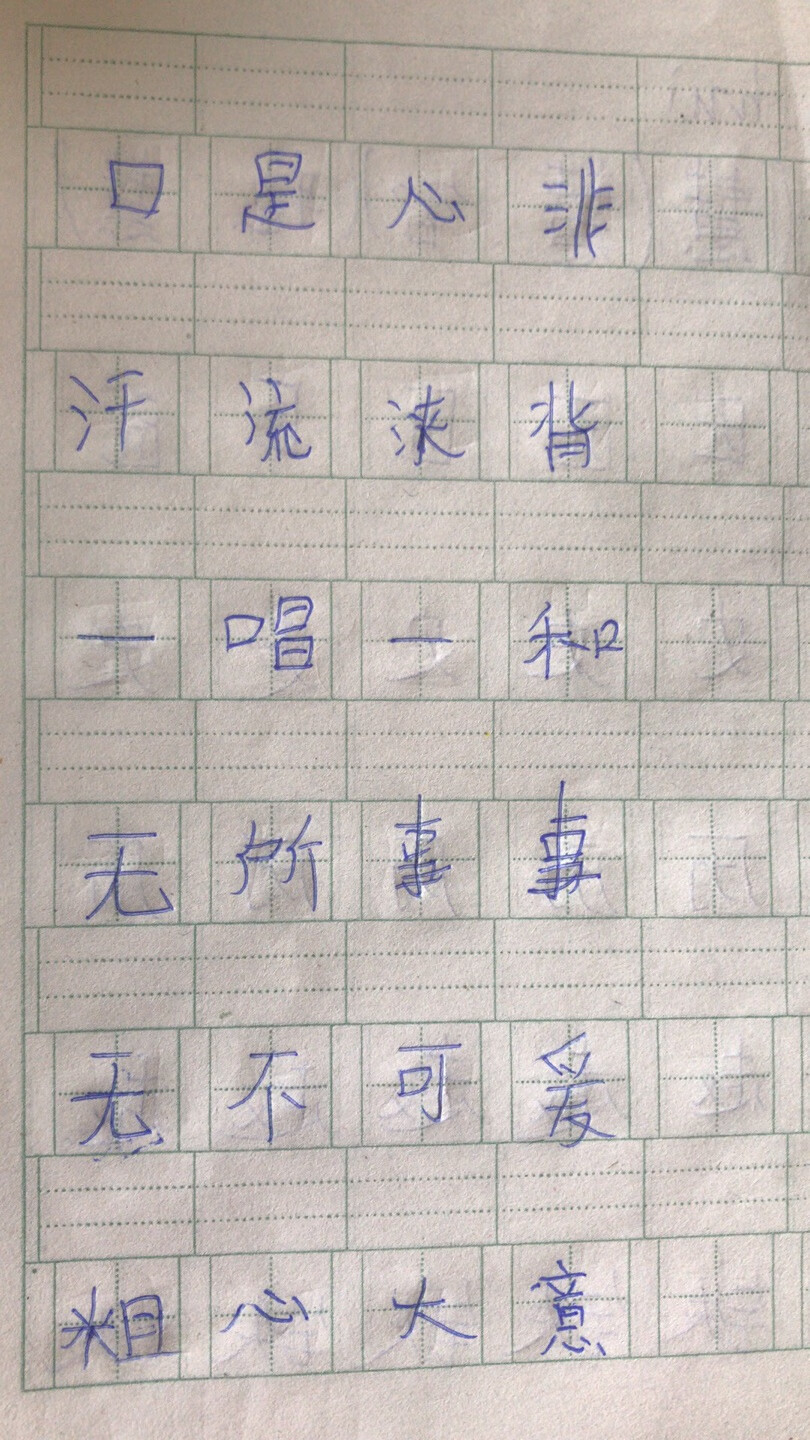 口是心非
汗流浃背
一唱一和
无所事事
无不可爱
粗心大意